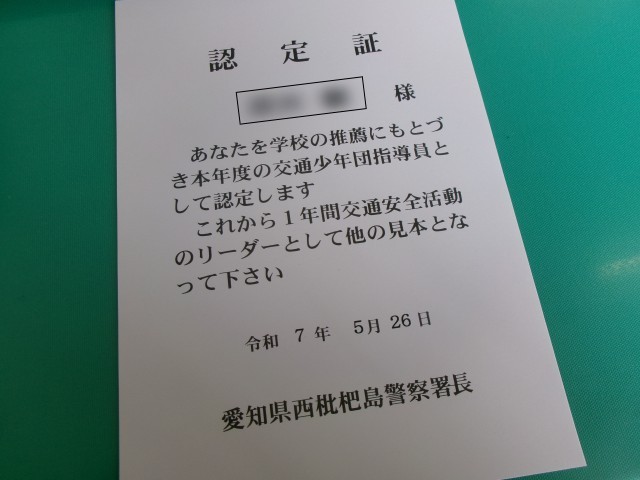 認定証
様
あなたを学校の推薦にもとづ
き本年度の交通少年団指導員と
して認定します
これから1年間交通安全活動
のリーダーとして他の見本とな
って下さい
令和 7 年 5月 26日
愛知県西枇杷島警察署長